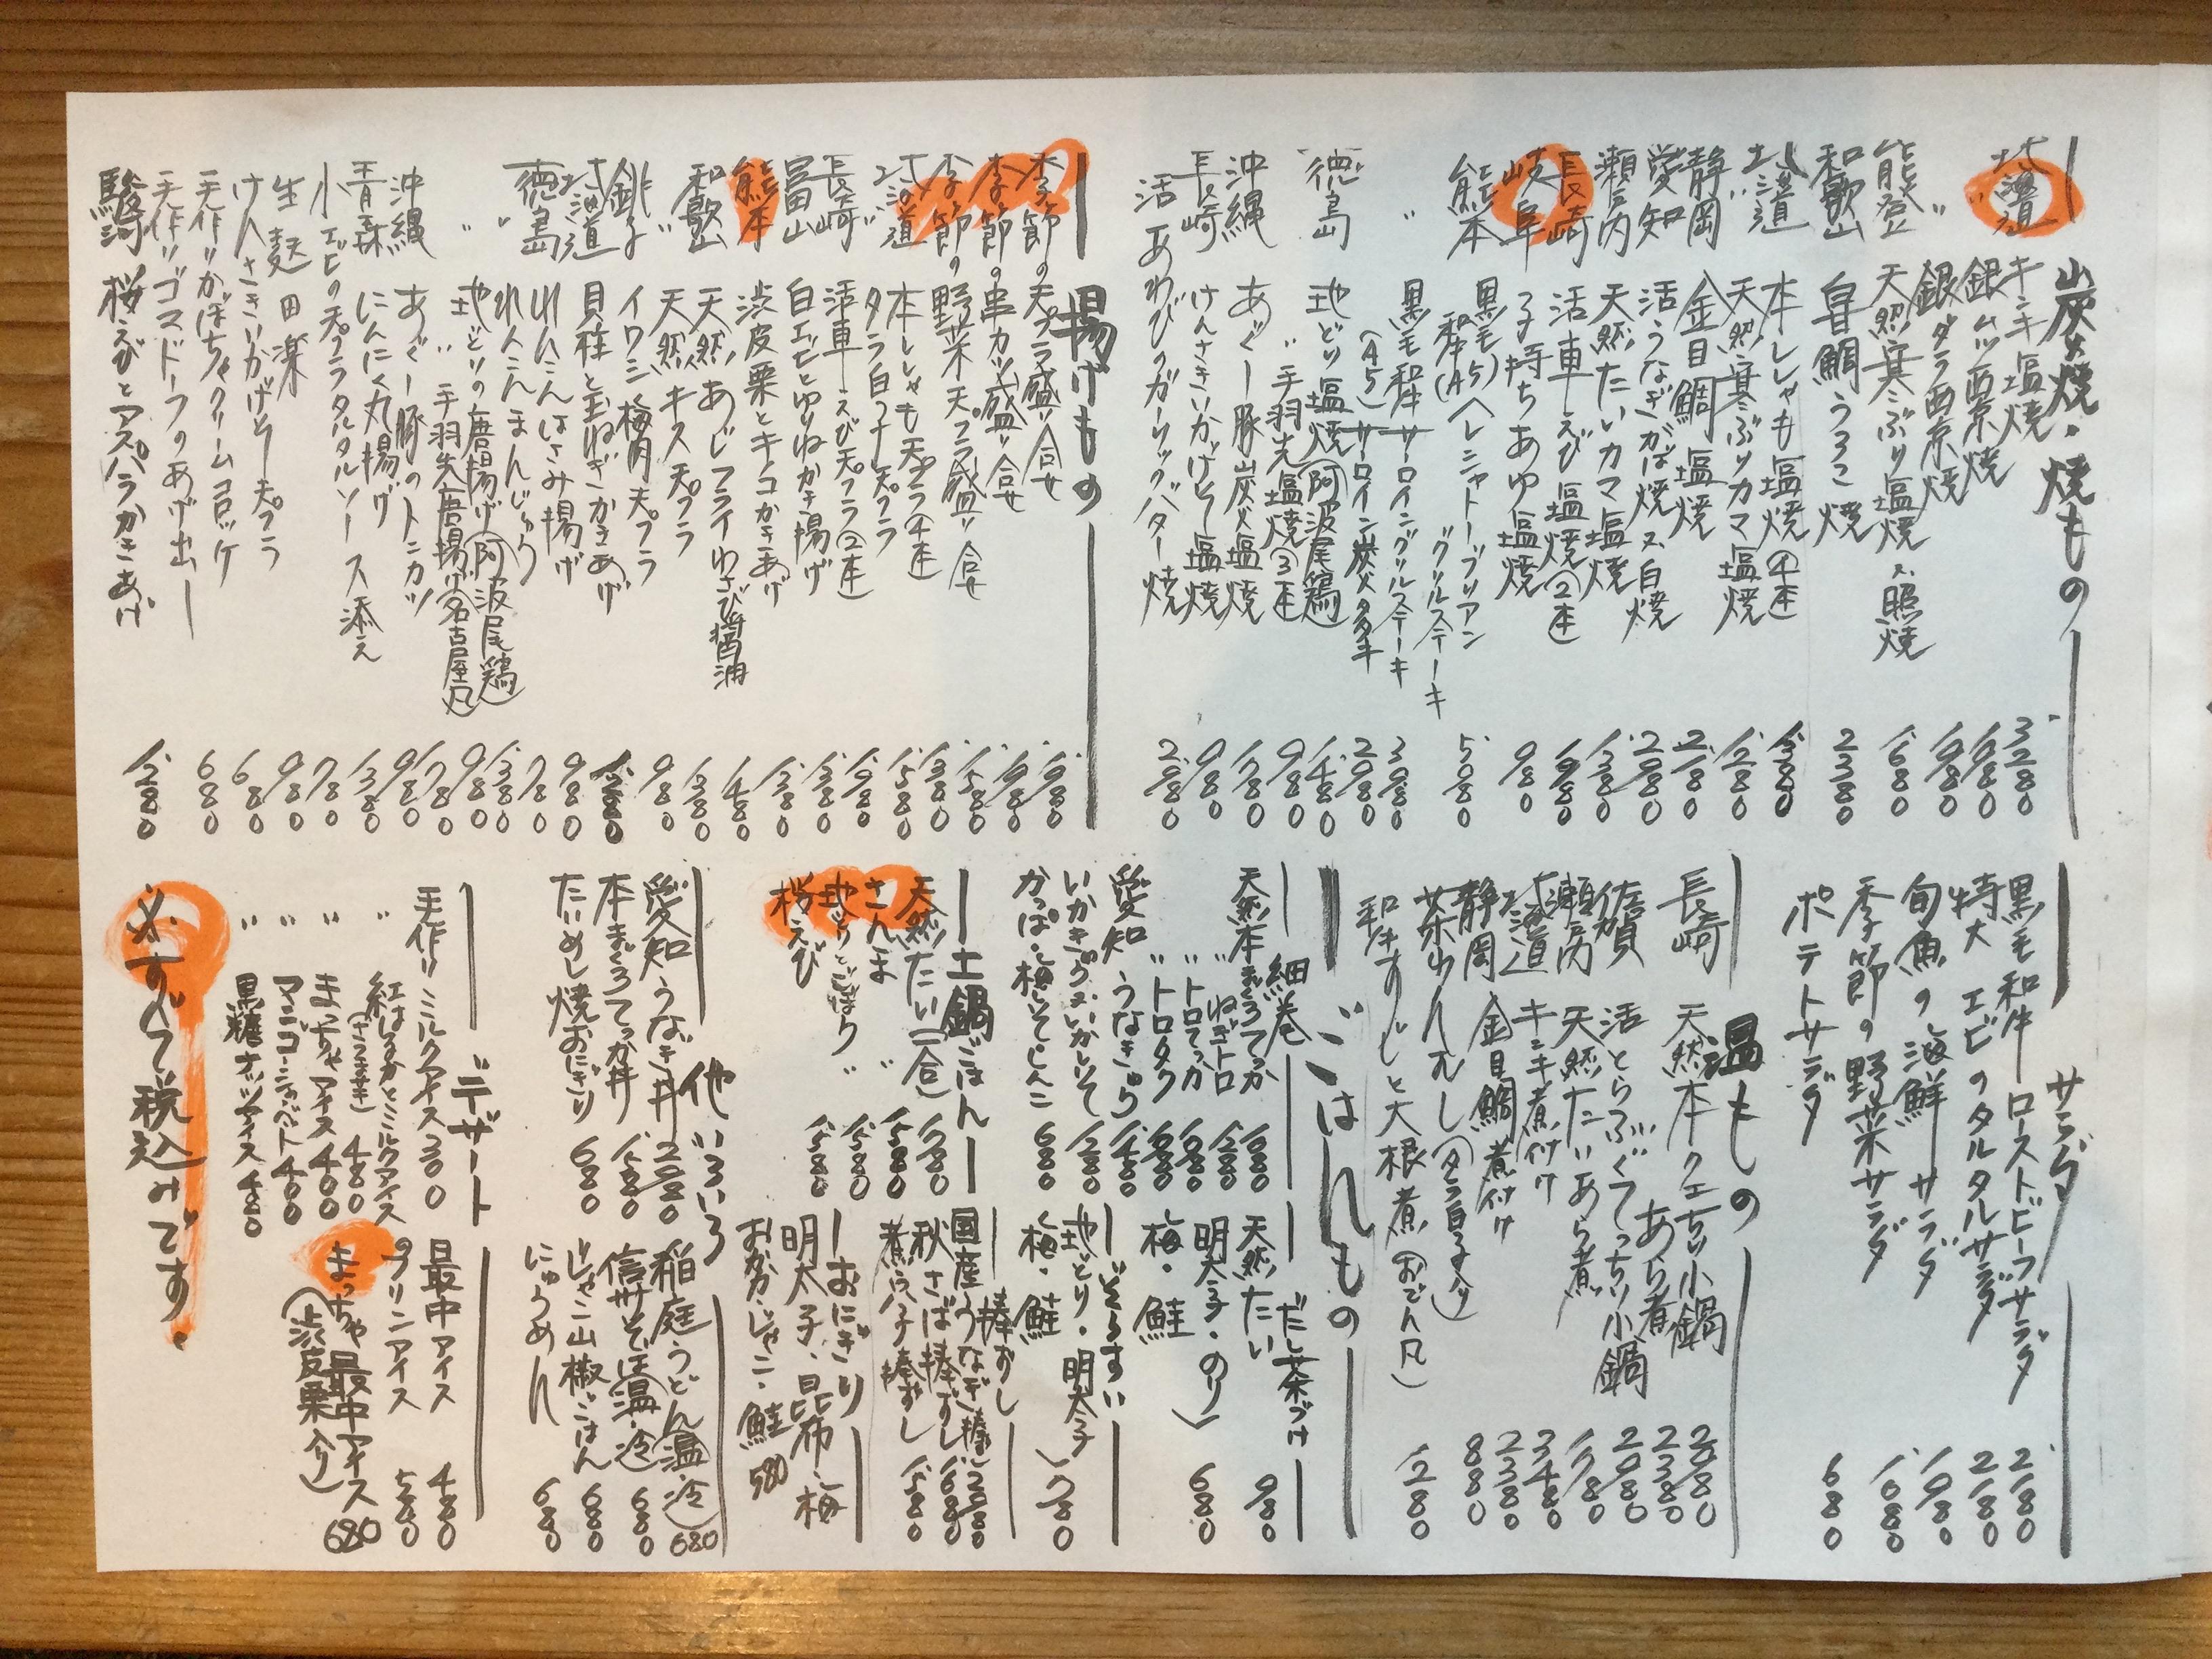 炭火焼・焼もの
北海道 キンキ塩焼 3280
〃 銀ムツ西京焼 1980
銀ダラ西京焼 1980
熊登 天然寒ぶり塩焼又照焼 1680
和歌山 甘鯛うろこ焼 2380
北海道 本ししゃも塩焼④本 1380
天然寒ぶりカマ塩焼 1280
静岡 金目鯛塩焼 2180
愛知 活うなぎかば焼又白焼 2980
瀬戸内 天然たいカマ塩焼 1380
長崎 活車えび塩焼②本 1980
岐阜 子持ちあゆ塩焼 980
熊本 黒毛和牛(A5)ヘレシャトーブリアン
グリルステーキ 5080
〃 黒毛和牛サーロイングリルステーキ 3080
(A5)サーロイン炭火タタキ 2080
徳島 地どり塩焼(阿波尾鶏) 1480
〃 手羽先塩焼③本 980
沖縄 あぐー豚炭火塩焼 1780
長崎 けんさきいかげそ塩焼 980
活あわびのガーリックバター焼 2980
揚げもの
季節の天プラ盛り合せ 1980
季節の串カツ盛り合せ 1980
季節の野菜天プラ盛り合せ 1580
北海道 本ししゃも天プラ④本 1380
〃 タラ白子天プラ 1580
長崎 活車えび天プラ②本 1980
富山 白エビとゆりねかき揚げ 1380
熊本 渋皮栗とキノコかきあげ 1380
和歌山 天然あじフライわさび醤油 1480
〃 天然キス天プラ 1380
銚子 イワシ梅肉天プラ 980
北海道 貝柱と玉ねぎかきあげ 1280
徳島 れんこんはさみ揚げ 980
〃 れんこんまんじゅう 780
〃 地どりの唐揚げ(阿波尾鶏) 1380
〃 手羽先唐揚げ(名古屋風) 980
沖縄 あぐー豚のトンカツ 1780
青森 にんにく丸揚げ 980
小エビの天プラタルタルソース添え 1380
生麩田楽 780
けんさきいかげそ天プラ 980
手作りかぼちゃクリームコロッケ 680
手作りゴマドーフのあげ出し 680
駿河 桜えびとアスパラかきあげ 1280
サラダ
黒毛和牛ローストビーフサラダ 2180
特大エビのタルタルサラダ 2180
旬魚の海鮮サラダ 1980
季節の野菜サラダ 1080
ポテトサラダ 680
温もの
長崎 天然本クエちり小鍋 2980
〃 あら煮 2380
佐賀 活とらふぐてっちり小鍋 2980
瀬戸内 天然たいあら煮 1780
北海道 キンキ煮付け 3480
静岡 金目鯛煮付け 2380
茶わんむし(タラ白子入り) 880
和牛すじと大根煮(おでん風) 1280
ごはんもの
細巻
天然本まぐろてっか 1080
〃 ねぎトロ 1280
〃 トロてっか 1680
〃 トロタク 1680
愛知 うなきゅう 1480
いかきゅう・いかしそ 1280
かっぱ・梅しそ・しんこ 680
だし茶づけ
天然たい 980
明太子・のり 680
梅・鮭
ぞうすい
地とり・明太子
梅・鮭 780
土鍋ごはん
天然たい(一合) 1780
さんま 〃 1580
地とりごぼう 〃 1580
桜えび 1580
棒ずし
国産うなぎ棒ずし 2080
秋さば棒ずし 1680
煮穴子棒ずし 1580
おにぎり
明太子・昆布・梅
おかか・じゃこ・鮭 580
他いろいろ
愛知うなぎ丼 2080
本まぐろてっか丼 1580
たいめし焼おにぎり 680
稲庭うどん(温・冷) 680
信州そば(温・冷) 680
じゃこ山椒ごはん 680
にゅうめん 680
デザート
手作りミルクアイス 300
〃 紅はるかとミルクアイス
(さつま芋) 480
〃 まっちゃアイス 400
〃 マンゴーシャーベット 400
〃 黒糖ナッツアイス 480
最中アイス 480
プリンアイス 580
まっちゃ最中アイス 680
(渋皮栗入り)
※すべて税込みです。